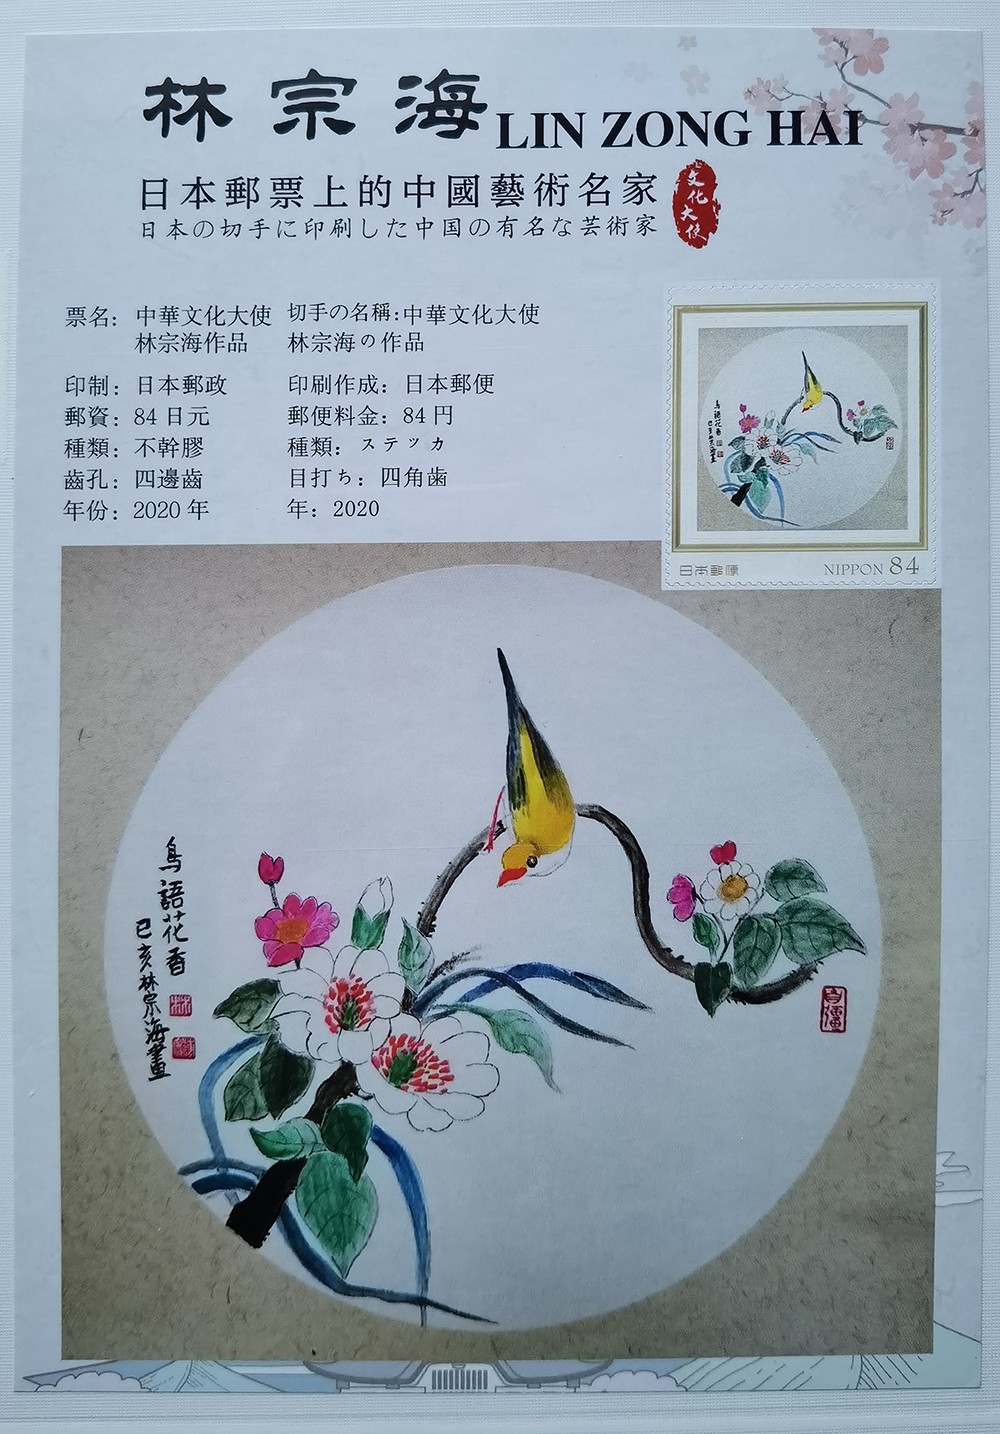 林宗海 LIN ZONG HAI
日本郵票上的中國藝術名家
日本の切手に印刷した中国の有名な芸術家
文化大使
票名: 中華文化大使
林宗海作品
印制: 日本郵政
郵資: 84日元
種類: 不幹膠
齒孔: 四邊齒
年份: 2020年
切手の名稱:中華文化大使
林宗海の作品
印刷作成: 日本郵便
郵便料金: 84円
種類: ステッカ
目打ち: 四角歯
年: 2020
鳥語花香
己亥林宗海畫
日本郵便 NIPPON 84
鳥語花香
己亥林宗海畫